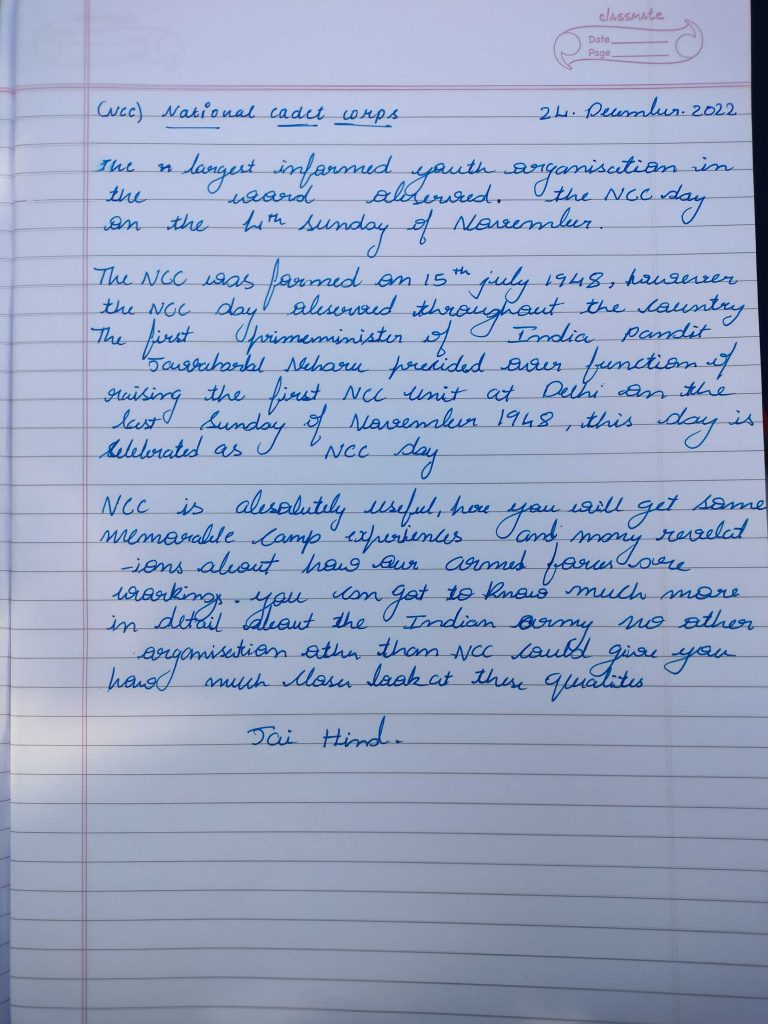 classmate
Date
Page
(NCC) National cadet corps 24. December. 2022
The largest informed youth organisation in
the word observed. the NCC day
on the 4th sunday of November.
The NCC was formed on 15th july 1948, however
the NCC day observed throughout the country
The first primeminister of India Pandit
Jawaharlal Neharu presided over function of
raising the first NCC unit at Delhi on the
last Sunday of November 1948, this day is
Celebrated as NCC day
NCC is absolutely useful, here you will get some
memorable camp experiences and many revelat
-ions about how our armed forces are
workings. you can got to know much more
in detail about the Indian army no other
organisation other than NCC could give you
how much closer look at these qualites
Jai Hind.